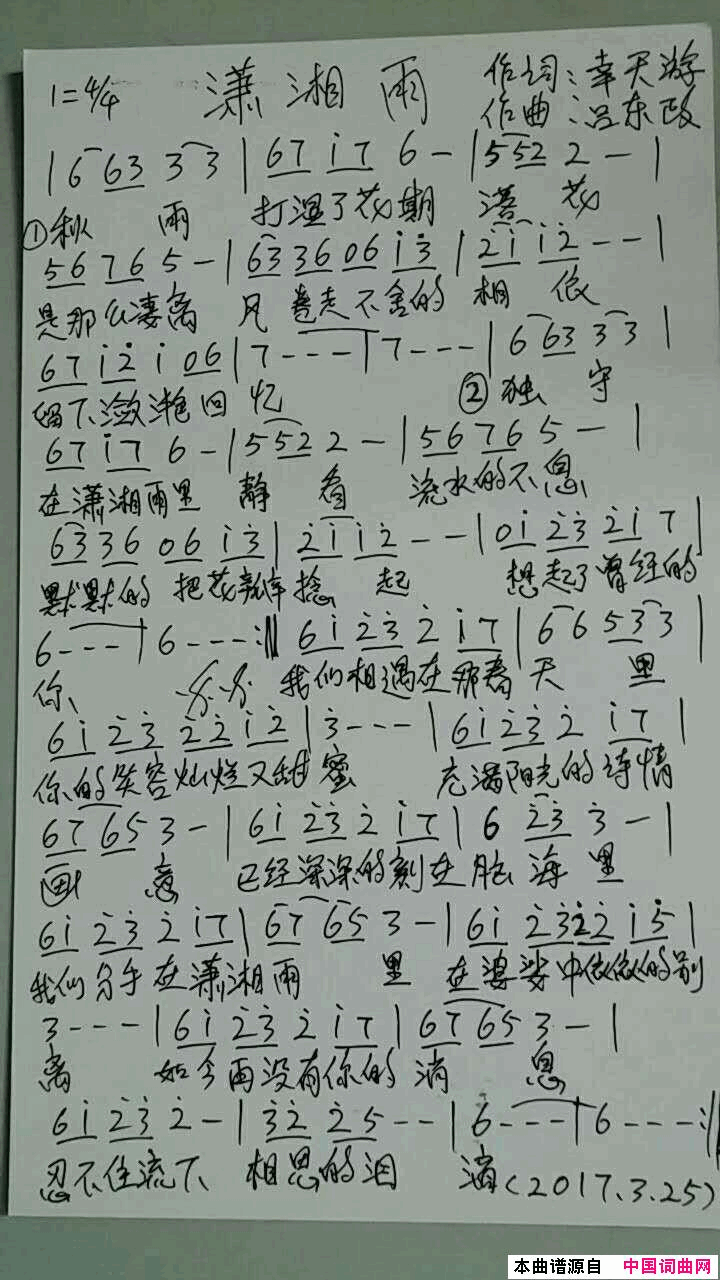 1=4/4 潇湘雨 作词:幸天游
作曲:吕东政
| 6 63 3 3 | 67 i7 6 - | 5 52 2 - |
①秋 雨 打湿了花期 落 花
56 76 5 - | 63 36 06 i3̇ | 2̇i i2̇ - - |
是那么凄离 风 卷走不舍的 相 依
67 i2̇ i 06 | 7 - - - | 7 - - - | 6 63 3 3 |
留下潋滟回忆 ②独 守
67 i7 6 - | 5 52 2 - | 56 76 5 - |
在潇湘雨里 静 看 流水的不息
63 36 06 i3̇ | 2̇i i2̇ - - | 0i 2̇3̇ 2̇i 7 |
默默的 把花瓣 捻 起 想起了曾经的
6 - - - | 6 - - - :‖ 6i 2̇3̇ 2̇ i7 | 6 6 53 3 |
你 我们相遇在那春天 里
6i 2̇3̇ 2̇2̇ i2̇ | 3̇ - - - | 6i 2̇3̇ 2̇ i7 |
你的笑容灿烂又甜蜜 充满阳光的诗情
67 65 3 - | 6i 2̇3̇ 2̇ i7 | 6 2̇3̇ 3̇ - |
画 意 已经深深的刻在脑海里
6i 2̇3̇ 2̇ i7 | 67 65 3 - | 6i 2̇3̇2̇2̇ i5 |
我们分手在潇湘雨 里 在婆娑中依依的别
3 - - - | 6i 2̇3̇ 2̇ i7 | 67 65 3 - |
离 如今再没有你的消 息
6i 2̇3̇ 2̇ - | 3̇2̇ 2̇5 - - | 6 - - - | 6 - - - :‖
忍不住流下 相思的泪 滴(2017.3.25)
本曲谱源自 中国词曲网